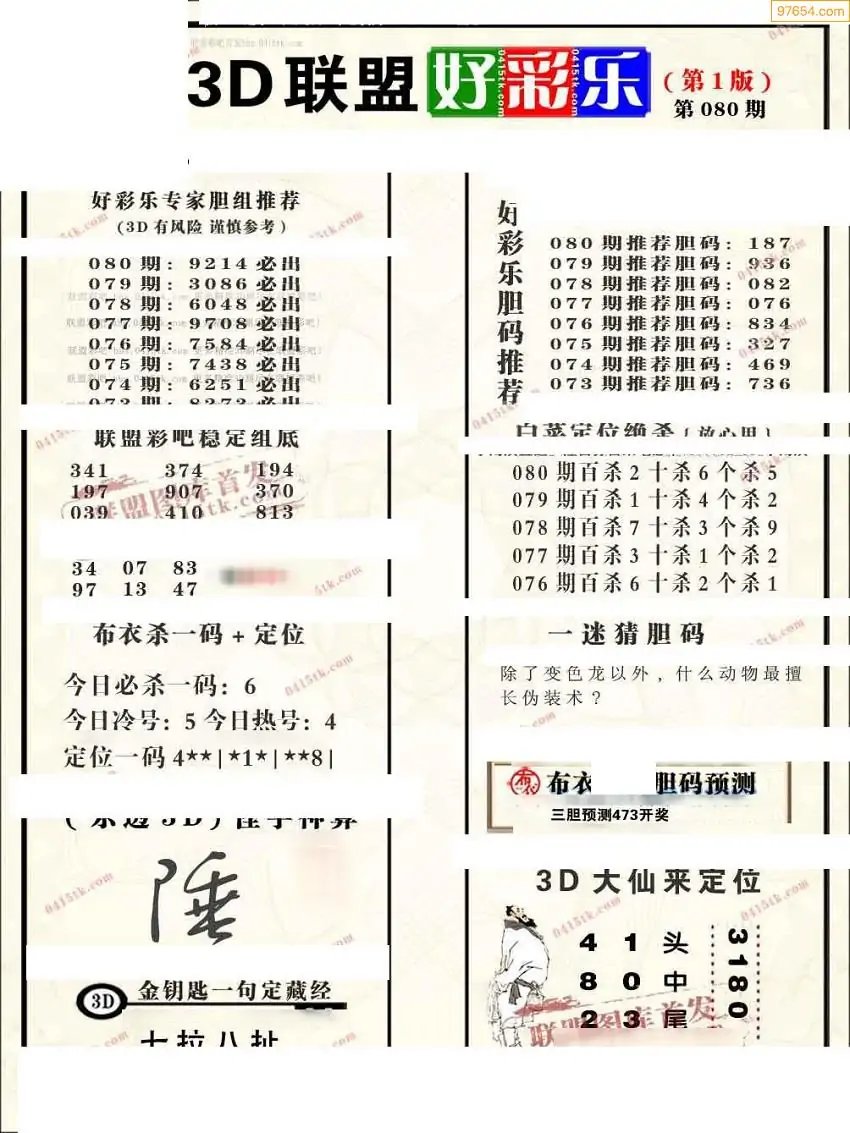 97654.com
3D联盟好彩乐
(第1版)
第080期
好彩乐专家胆组推荐
(3D有风险 谨慎参考)
080期：9214必出
079期：3086必出
078期：6048必出
077期：9708必出
076期：7584必出
075期：7438必出
074期：6251必出
073期：8273必出
联盟彩吧稳定组底
341 374 194
197 907 370
039 410 813
34 07 83
97 13 47
布衣杀一码+定位
今日必杀一码：6
今日冷号：5 今日热号：4
定位一码4**|*1*|**8|
陲
3D 金钥匙一句定藏经
七拉八扯
好彩乐胆码推荐
080期推荐胆码：187
079期推荐胆码：936
078期推荐胆码：082
077期推荐胆码：076
076期推荐胆码：834
075期推荐胆码：327
074期推荐胆码：469
073期推荐胆码：736
白菜定位绝杀(放心用)
080期百杀2十杀6个杀5
079期百杀1十杀4个杀2
078期百杀7十杀3个杀9
077期百杀3十杀1个杀2
076期百杀6十杀2个杀1
一迷猜胆码
除了变色龙以外，什么动物最擅
长伪装术？
布衣 胆码预测
三胆预测473开奖
3D大仙来定位
4 1 头
8 0 中
2 3 尾
3180
联盟图库首发
0415tk.com